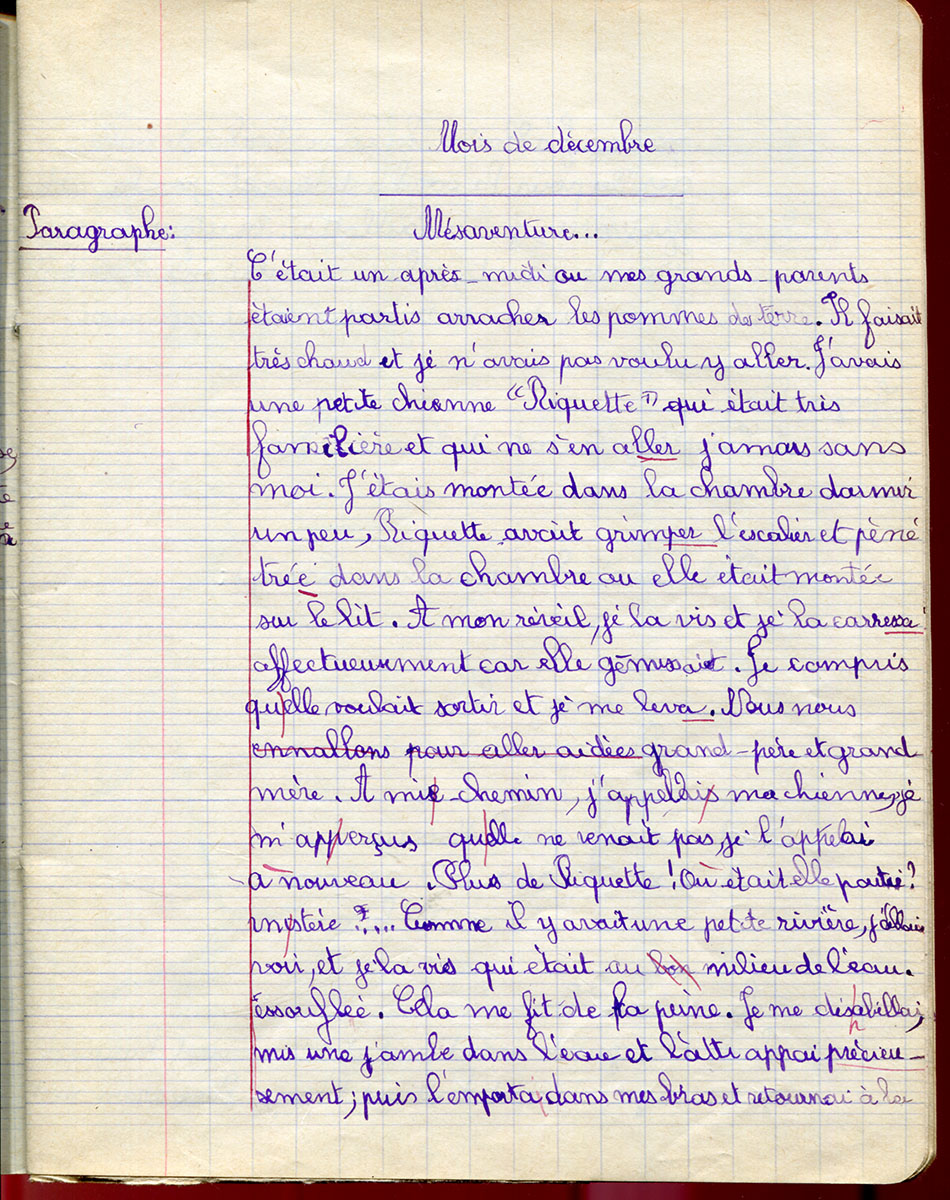 Mois de décembre
Paragraphe:
Mésaventure...
C'était un après-midi ou mes grands-parents
étaient partis arracher les pommes de terre. Il faisait
très chaud et je n'avais pas voulu y aller. J'avais
une petite chienne "Riquette" qui était très
familière et qui ne s'en aller jamais sans
moi. J'étais montée dans la chambre dormir
un peu, Riquette avait grimper l'escalier et péné
trée dans la chambre ou elle était montée
sur le lit. A mon réveil, je la vis et je la carressa
affectueusement car elle gémissait. Je compris
qu'elle voulait sortir et je me leva. Nous nous
ennallons pour aller aidées grand-père et grand
mère. A mie-chemin, j'appelais ma chienne, je
m'apperçus quelle ne venait pas, je l'appelai
à nouveau. Plus de Riquette! Où était elle partie?
mystère ?... Comme il y avait une petite rivière, j'allai
voir, et je la vis qui était au milieu de l'eau.
essouflée. Cela me fit de la peine. Je me déshabillai,
mis une jambe dans l'eau et précieu-
sement; puis l'emporta dans mes bras et retournai à la